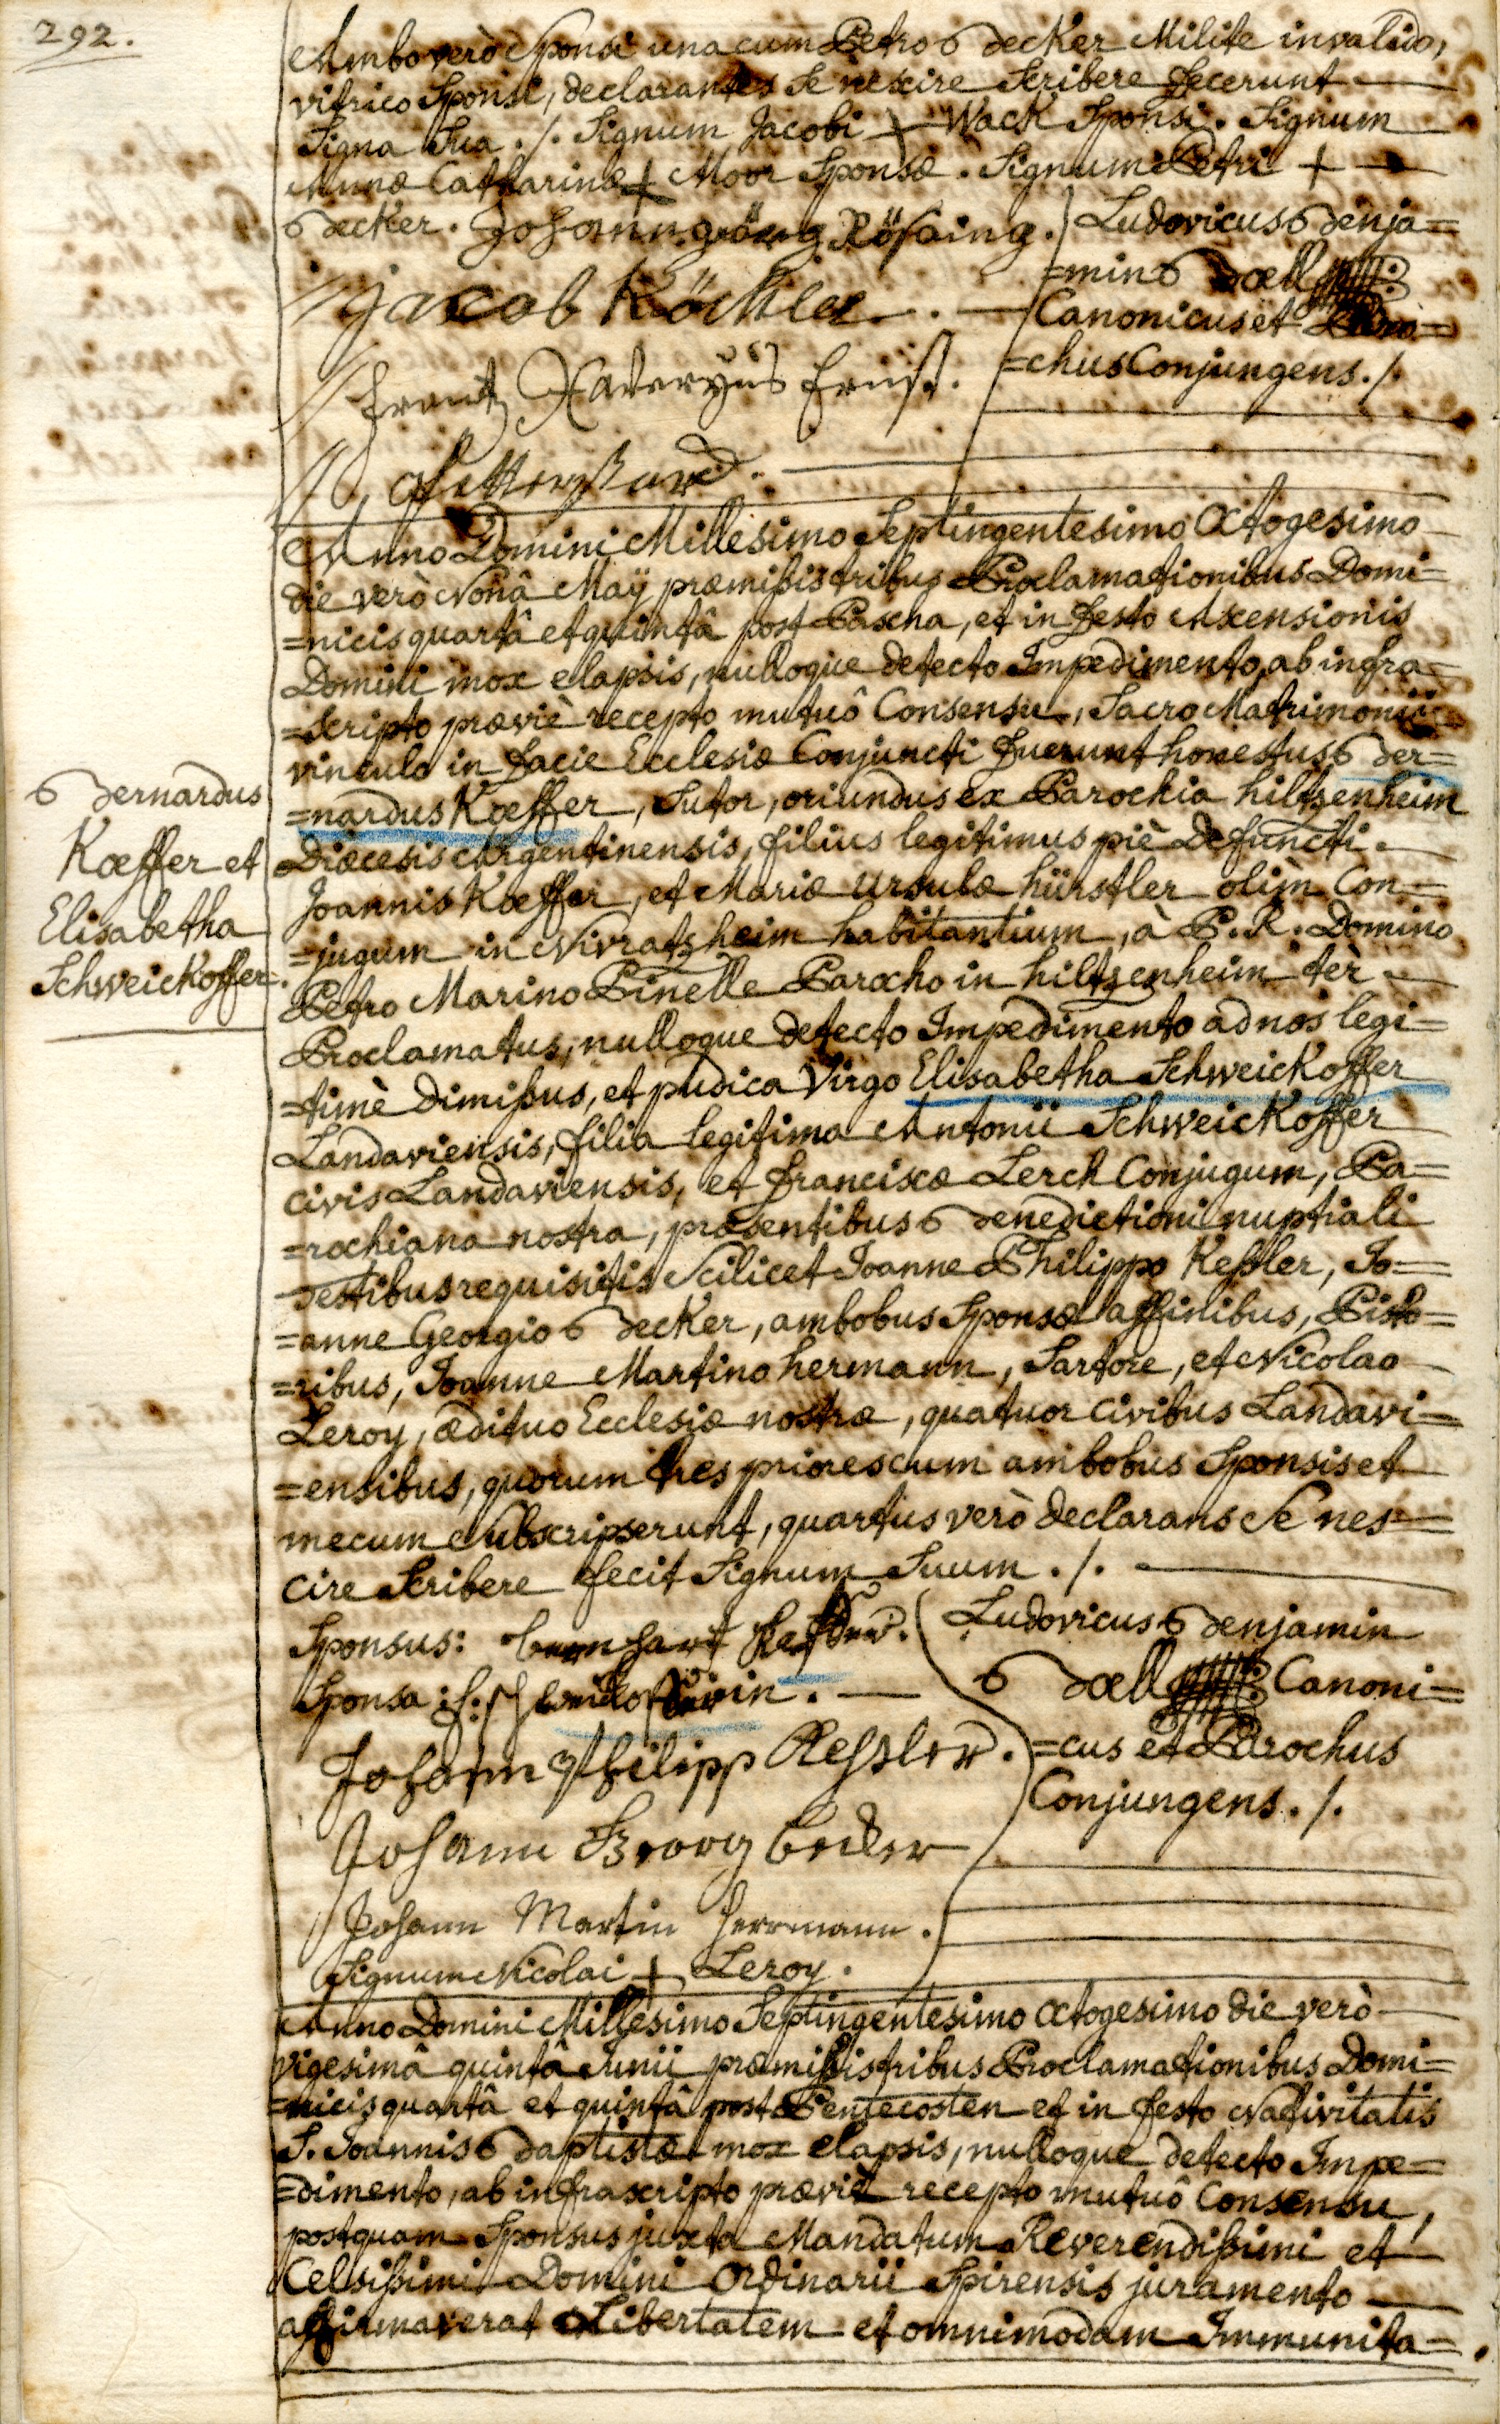 292.
Ambo verò Sponsi una cum Petro Becker Milite invalido,
vitrico Sponsi, declarantes Se nescire Scribere fecerunt
Signa Sua ./. Signum Jacobi + Wack Sponsi. Signum
Annæ Catharinæ + Moor Sponsæ. Signum Petri +
Becker. Johann georg Rössing.
Jacob Köchler.
Frantz Xaveryus Ernst.
Ludovicus Benja=
=min Bœll
Canonicus et Paro=
=chus Conjungens ./.
Anno Domini Millesimo Septingentesimo Octogesimo
die verò Nonâ Maÿ præmißis tribus Proclamationibus Domi=
=nicis quartâ et quintâ post Pascha, et in festo Ascensionis
Domini mox elapsis, nulloque detecto Impedimento, ab infra=
=Scripto præviè recepto mutuô Consensu, Sacro Matrimonii
vinculo in facie Ecclesiæ Conjuncti fuerunt honestus Ber=
=nardus Kœffer, Sutor, oriundus ex Parochia hiltzenheim
Diœcesis Argentinensis, filius legitimus piè Defuncti
Joannis Kœffer, et Mariæ Ursulæ hürstler olim Con=
=jugum in Nivratzheim habitantium, à P. R. Domino
Petro Marino Pinelle Parocho in hiltzenheim tèr
Proclamatus, nulloque detecto Impedimento ad nos legi=
=timè Dimißus, et pudica Virgo Elisabetha Schweickoffer
Landaviensis, filia legitima Antonii Schweickoffer
civis Landaviensis, et franciscæ Lerch Conjugum, Pa=
=rochiana nostra, præsentibus Benedictioni nuptiali
Testibus requisitis Scilicet Joanne Philippo Keßler, Jo=
=anne Georgio Becker, ambobus Sponsæ affinibus, Pisto=
=ribus, Joanne Martino hermann, Sartore, et Nicolao
Leroy, ædituo Ecclesiæ nostræ, quatuor civibus Landavi=
=ensibus, quorum tres priores cum ambobus Sponsis et
mecum Subscripserunt, quartus verò declarans Se nes=
cire Scribere fecit Signum Suum ./.
Bernardus
Kœffer et
Elisabetha
Schweickoffer.
Sponsus: bernhart Keffer.
Sponsa: E: schweickofferin.
Johann Philipp Keßler.
Johann Georg becker
Johann Martin Herrmann.
Signum Nicolai + Leroy.
Ludovicus Benjamin
Bœll Canoni=
=cus et Parochus
Conjungens ./.
Anno Domini Millesimo Septingentesimo Octogesimo die verò
vigesimâ quintâ Junii præmißis tribus Proclamationibus Domi=
=nicis quartâ et quintâ post Pentecosten et in festo Nativitatis
S. Joannis Baptistæ mox elapsis, nulloque detecto Impe=
=dimento, ab infrascripto præviè recepto mutuô Consensu,
postquam Sponsus juxta Mandatum Reverendißimi et
Celsißimi Domini Ordinarii Spirensis juramento
affirmaverat Libertatem et omnimodam Immunita=